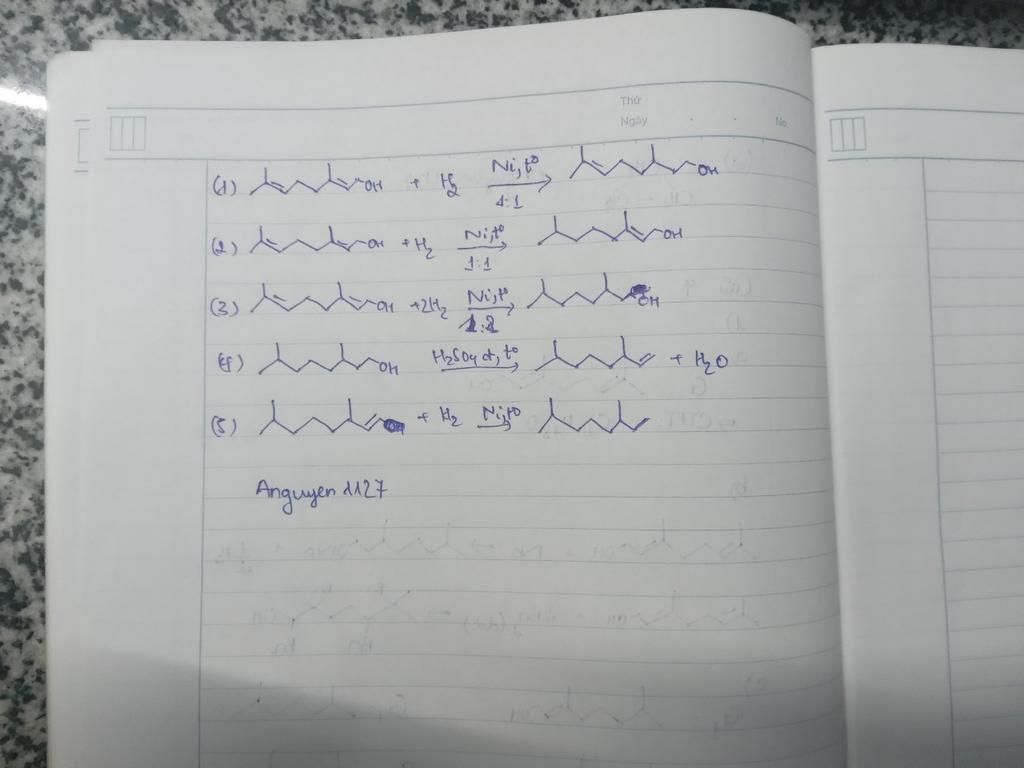 Thứ
Ngày . . No.
(1) OH + H₂ Ni, t° 1:1 OH
(2) OH + H₂ Ni, t° 1:1 OH
(3) OH + 2H₂ Ni, t° OH
(4) OH H₂SO₄ đ, t° + H₂O
(5) + H₂ Ni, t°
Anguyen 1127